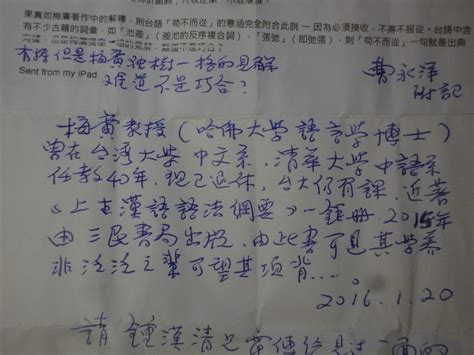 果真如梅廣著作中的解釋，則台語「苟不而從」的意涵完全附合此說 — 因為必須接收，不得不服從。台語中含
有不少古籍的詞彙，如「池差」（差池的反序複合詞）、「張弛」（即弛張），則「苟不而從」一句就是出典
有據 但是梅廣他樹一格的見解
難道不是巧合？
曹永洋
附記
Sent from my iPad
梅廣教授（哈佛大學語言學博士）
曾在台灣大學中文系，清華大學中語系
任教40年，現已退休，台大仍有課，近著
《上古漢語語法綱要》一鉅冊，2015年
由三民書局出版，由此書可見其學養
非泛泛之輩可望其項背…。
2016.1.20
請 鍾漢清兄